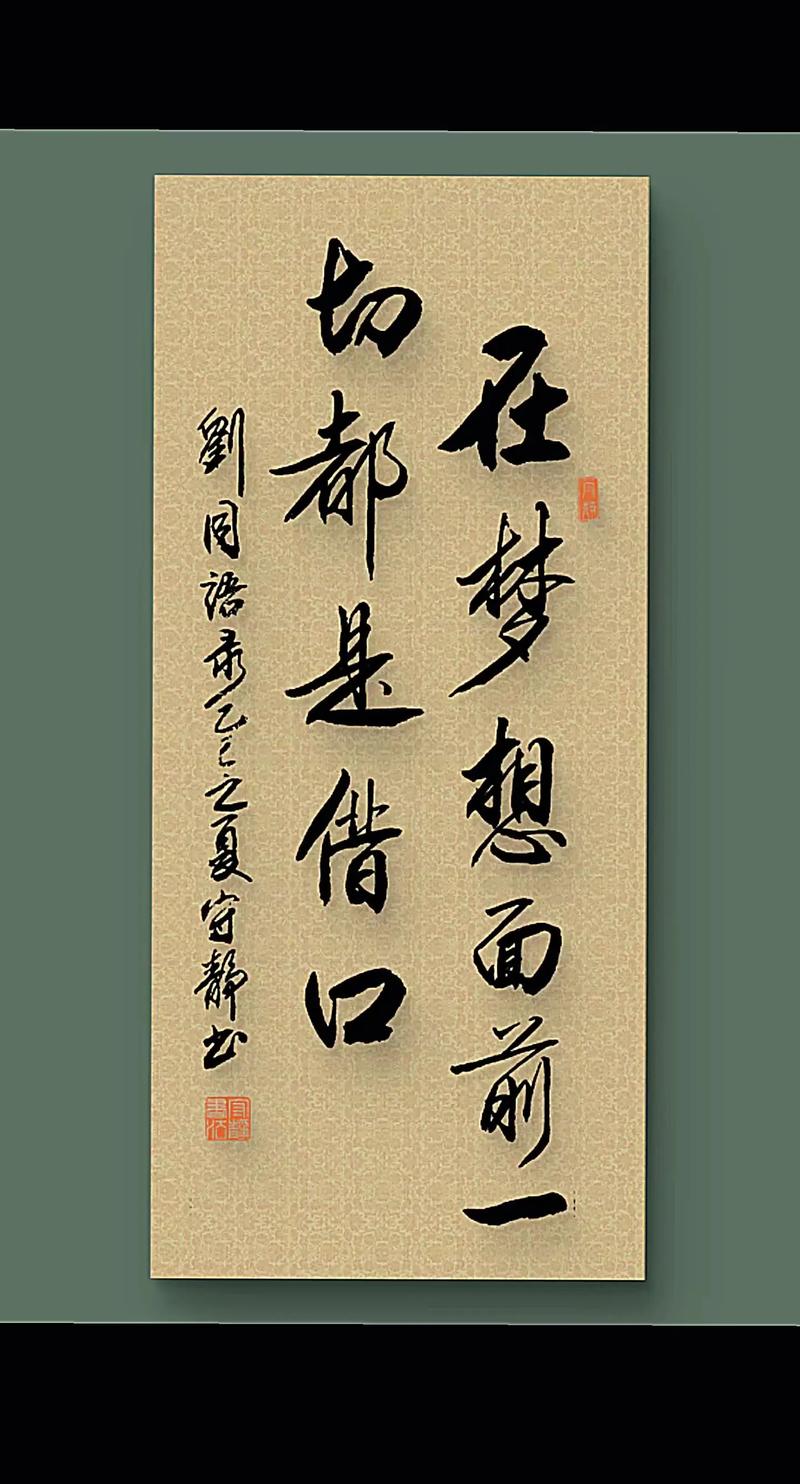 在梦想面前一
切都是借口
劉同語录乙巳之夏守静书